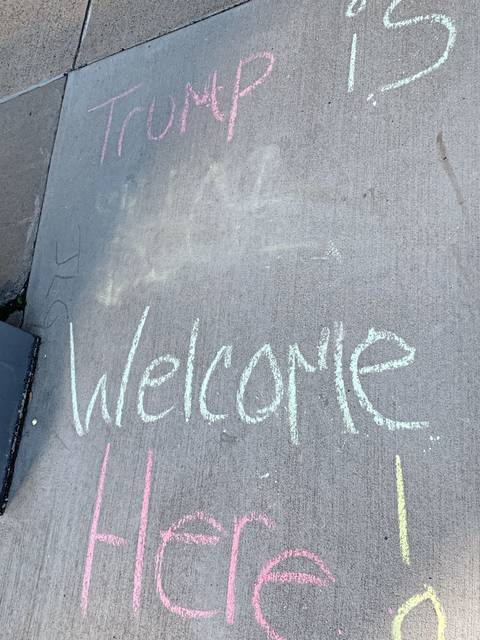 Trump is
Welcome
Here!